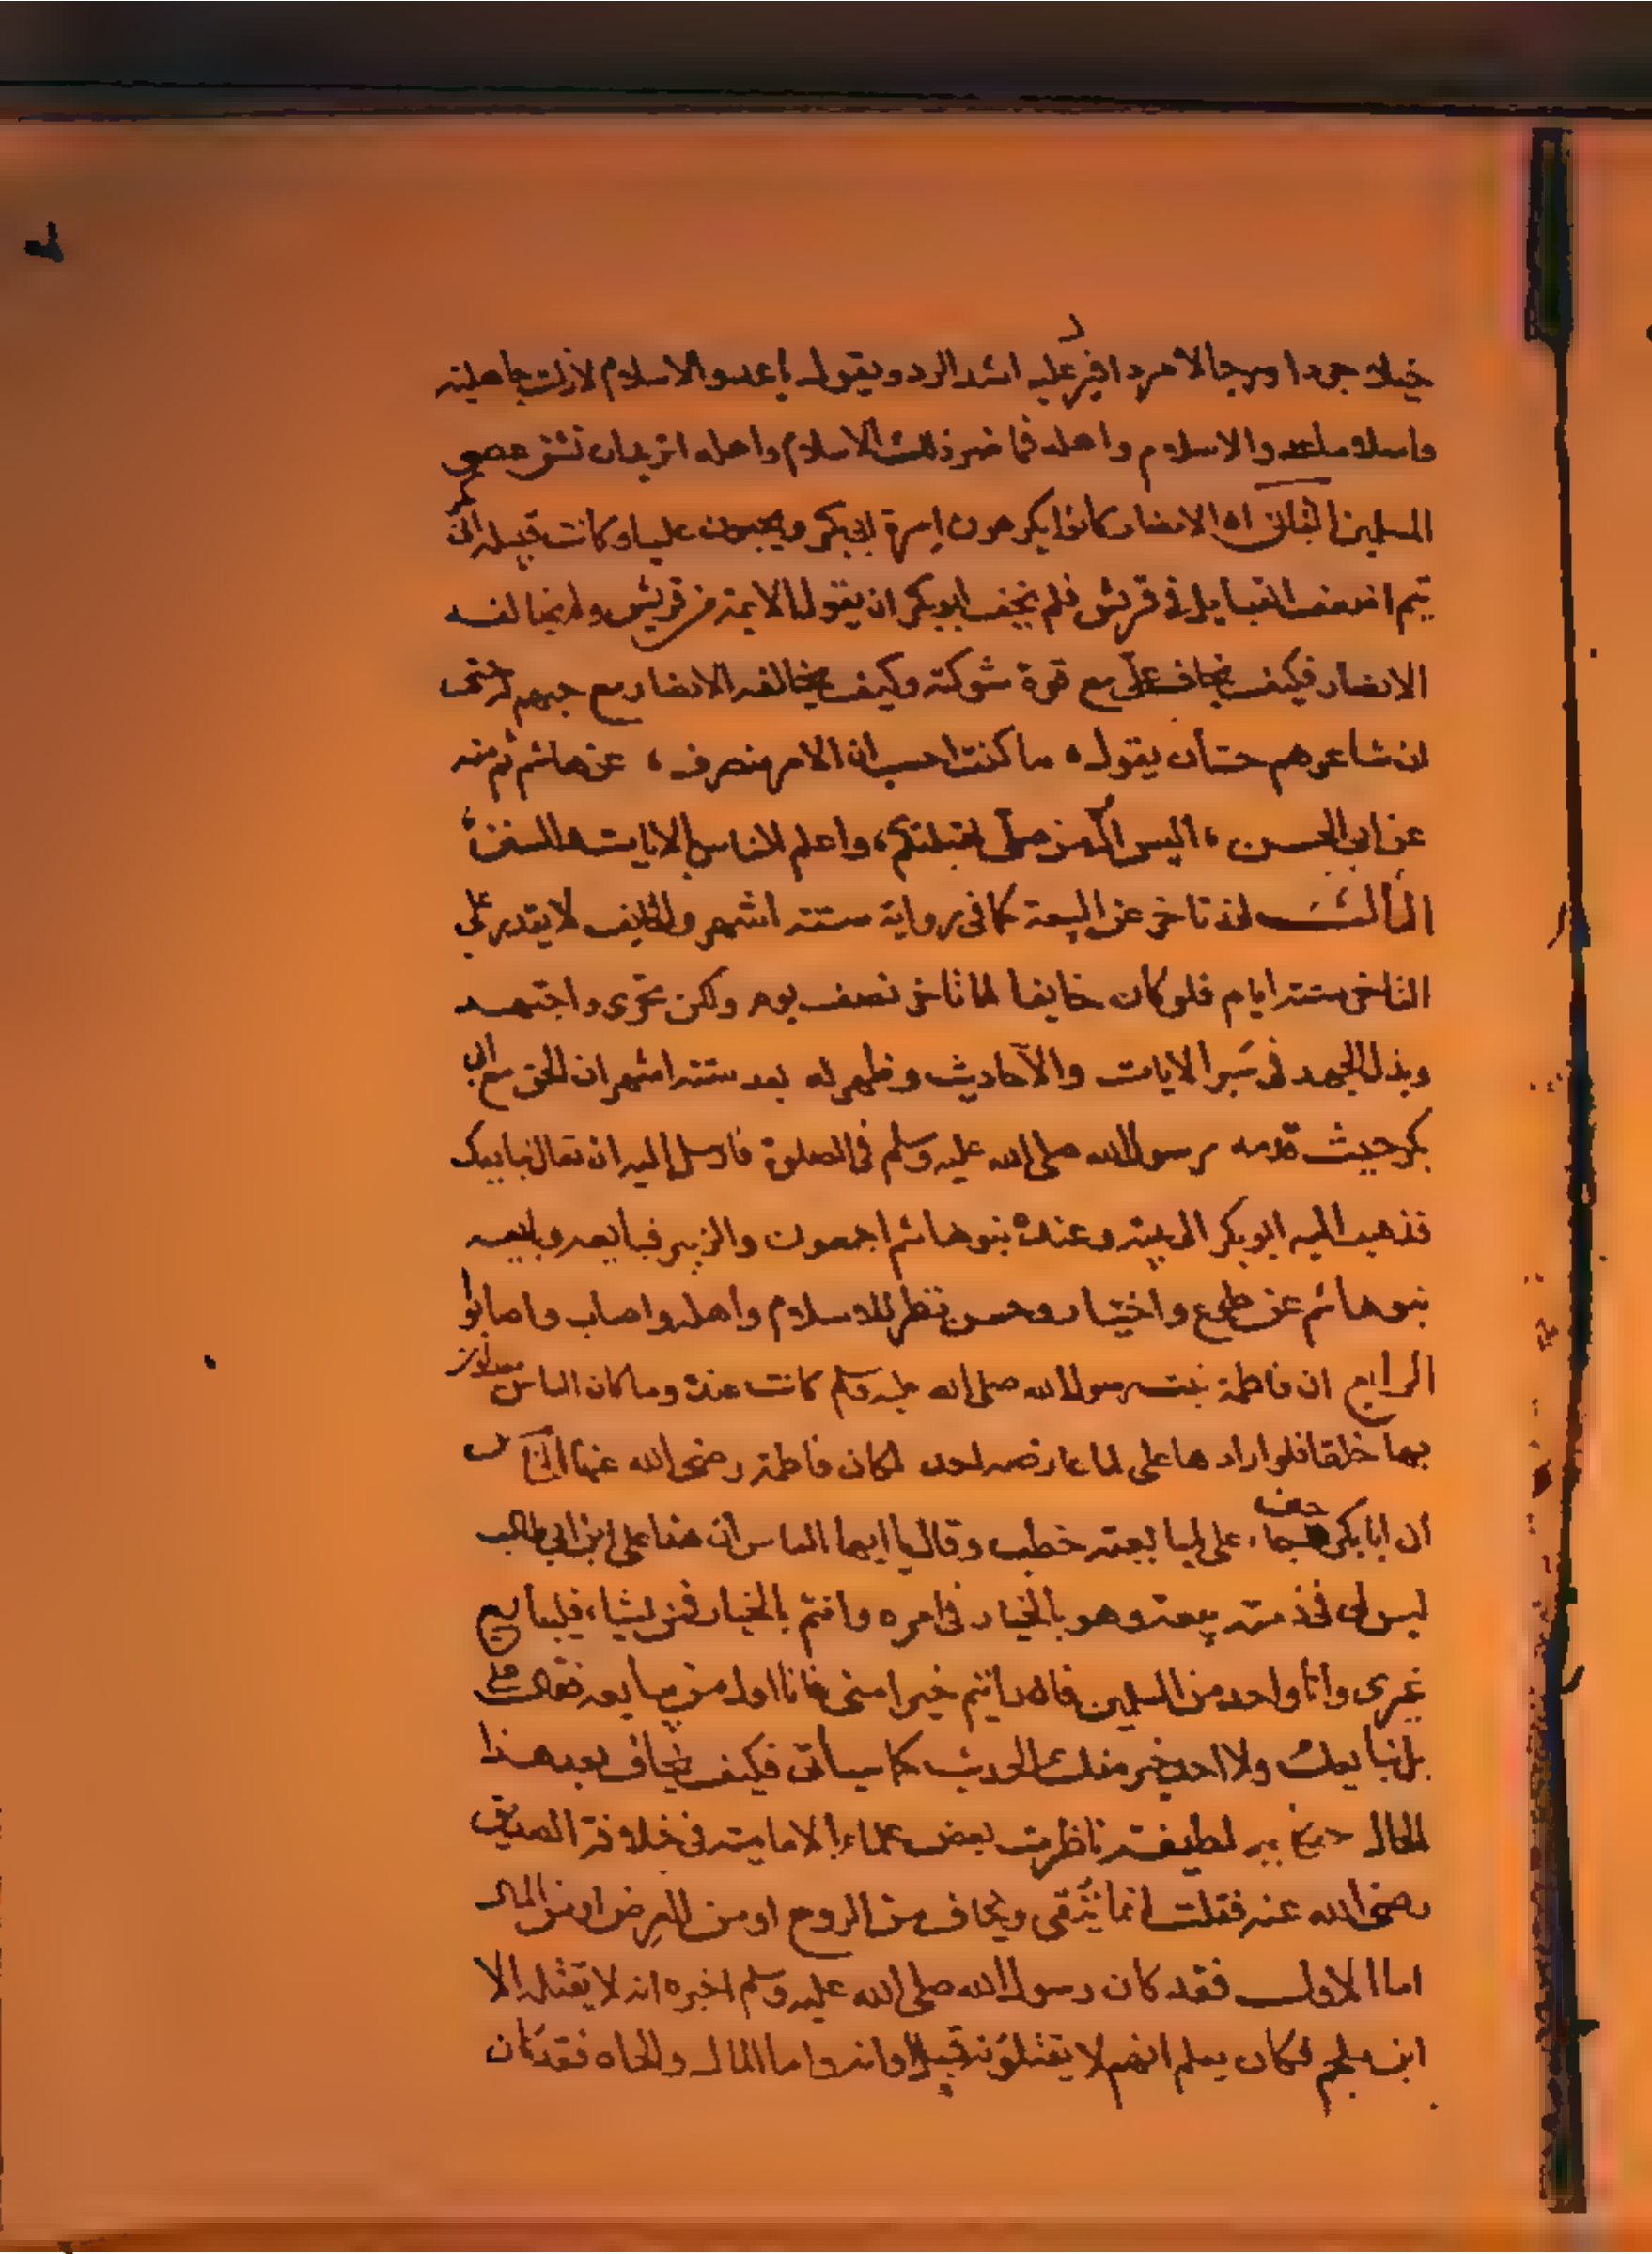 خيلا جردا ورجالا مردا فيرد عليه اشد الرد ويقول يا عدو الاسلام لازلت جاهلية
واسلاما عدو الاسلام واهله فما ضر ذلك الاسلام واهله اتريد ان تشق عصى
المسلمين الثاني ان الانصار كانوا يكرهون امرة ابي بكر ويحبون عليا وكانت قبيلة ابي بكر
تيم اضعف القبايل في قريش فلم يخف ابوبكر ان يقول الايمة من قريش ولم يخالفه
الانصار فكيف يخاف علي مع قوة شوكته وكيف يخالفه الانصار مع حبهم له حتى
ان شاعرهم حسان يقول ما كنت احسب ان الامر منصرف عن هاشم ثم منه
عن ابي الحسن اليس اول من صلى لقبلتكم واعلم الناس بالايات والسنن
الثالث انه تاخر عن البيعة كما في رواية ستة اشهر والخايف لا يقدر على
التاخر ستة ايام فلو كان خايفا لما تاخر نصف يوم ولكن تحرى واجتهد
وبذل الجهد في سبر الايات والآحاديث وظهر له بعد ستة اشهر ان الحق مع ابي
بكر حيث قدمه رسول الله صلى الله عليه وسلم في الصلوة فارسل اليه ان تعال نبايعك
فذهب اليه ابو بكر الى بيته وعنده بنو هاشم اجمعون والزبير فبايعه وبايعه
بنو هاشم عن طوع واختيار وحسن نظر للاسلام واهله واصاب واصابوا
الرابع ان فاطمة بنت رسول الله صلى الله عليه وسلم كانت عنده وما كان الناس يعدلون
بها خلقا فلو ارادها على لما عارضه احد لمكان فاطمة رضى الله عنها الخامس
ان ابا بكر حين جاء على ليبايعه خطب وقال يا ايها الناس ان هذا على ابن ابي طالب
ليس لى في ذمته بيعة وهو بالخيار في امره وانتم بالخيار فمن يشاء فليبايع
غيرى وانا واحد من المسلمين فان رايتم خيرا منى فانا اول من يبايعه فقال على
بل نبايعك ولا احد خير منك الحديث كما سياتي فكيف يخاف بعد هذا
الحال لطيفة ناظرت بعض علماء الامامية في خلافة الصديق
رضى الله عنه فقلت انما يتقى ويخاف من الروح او من العرض او من المال
اما الاول فقد كان رسول الله صلى الله عليه وسلم اخبره انه لا يقتله الا
ابن ملجم فكان يعلم انهم لا يقتلونه واما المال والجاه فقد كان